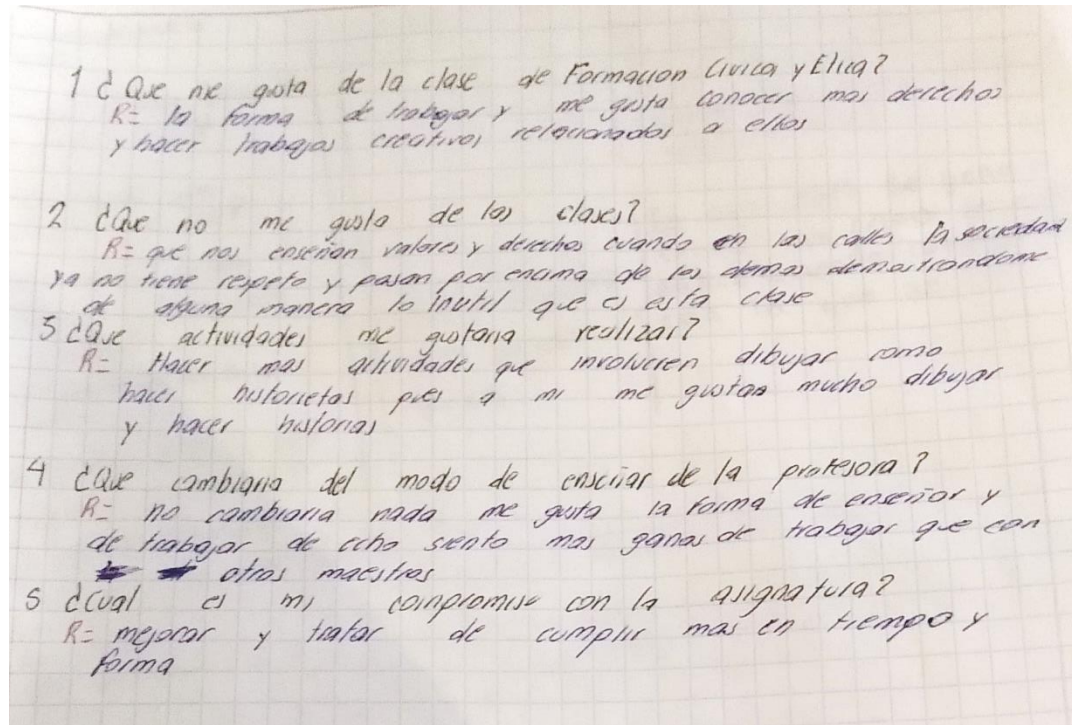 1 ¿Que me gusta de la clase de Formacion Civica y Etica?
R= la forma de trabajar y me gusta conocer mas derechos
y hacer trabajos creativos relacionados a ellos
2 ¿Que no me gusta de las clases?
R= que nos enseñan valores y derechos cuando en las calles la sociedad
ya no tiene respeto y pasan por encima de los demas demostrandome
de alguna manera lo inutil que es esta clase
3 ¿Que actividades me gustaria realizar?
R= Hacer mas actividades que involucren dibujar como
hacer historietas pues a mi me gustan mucho dibujar
y hacer historias
4 ¿Que cambiaria del modo de enseñar de la profesora?
R= no cambiaria nada me gusta la forma de enseñar y
de trabajar de echo siento mas ganas de trabajar que con
otros maestros
5 ¿Cual es mi compromiso con la asignatura?
R= mejorar y tratar de cumplir mas en tiempo y
forma